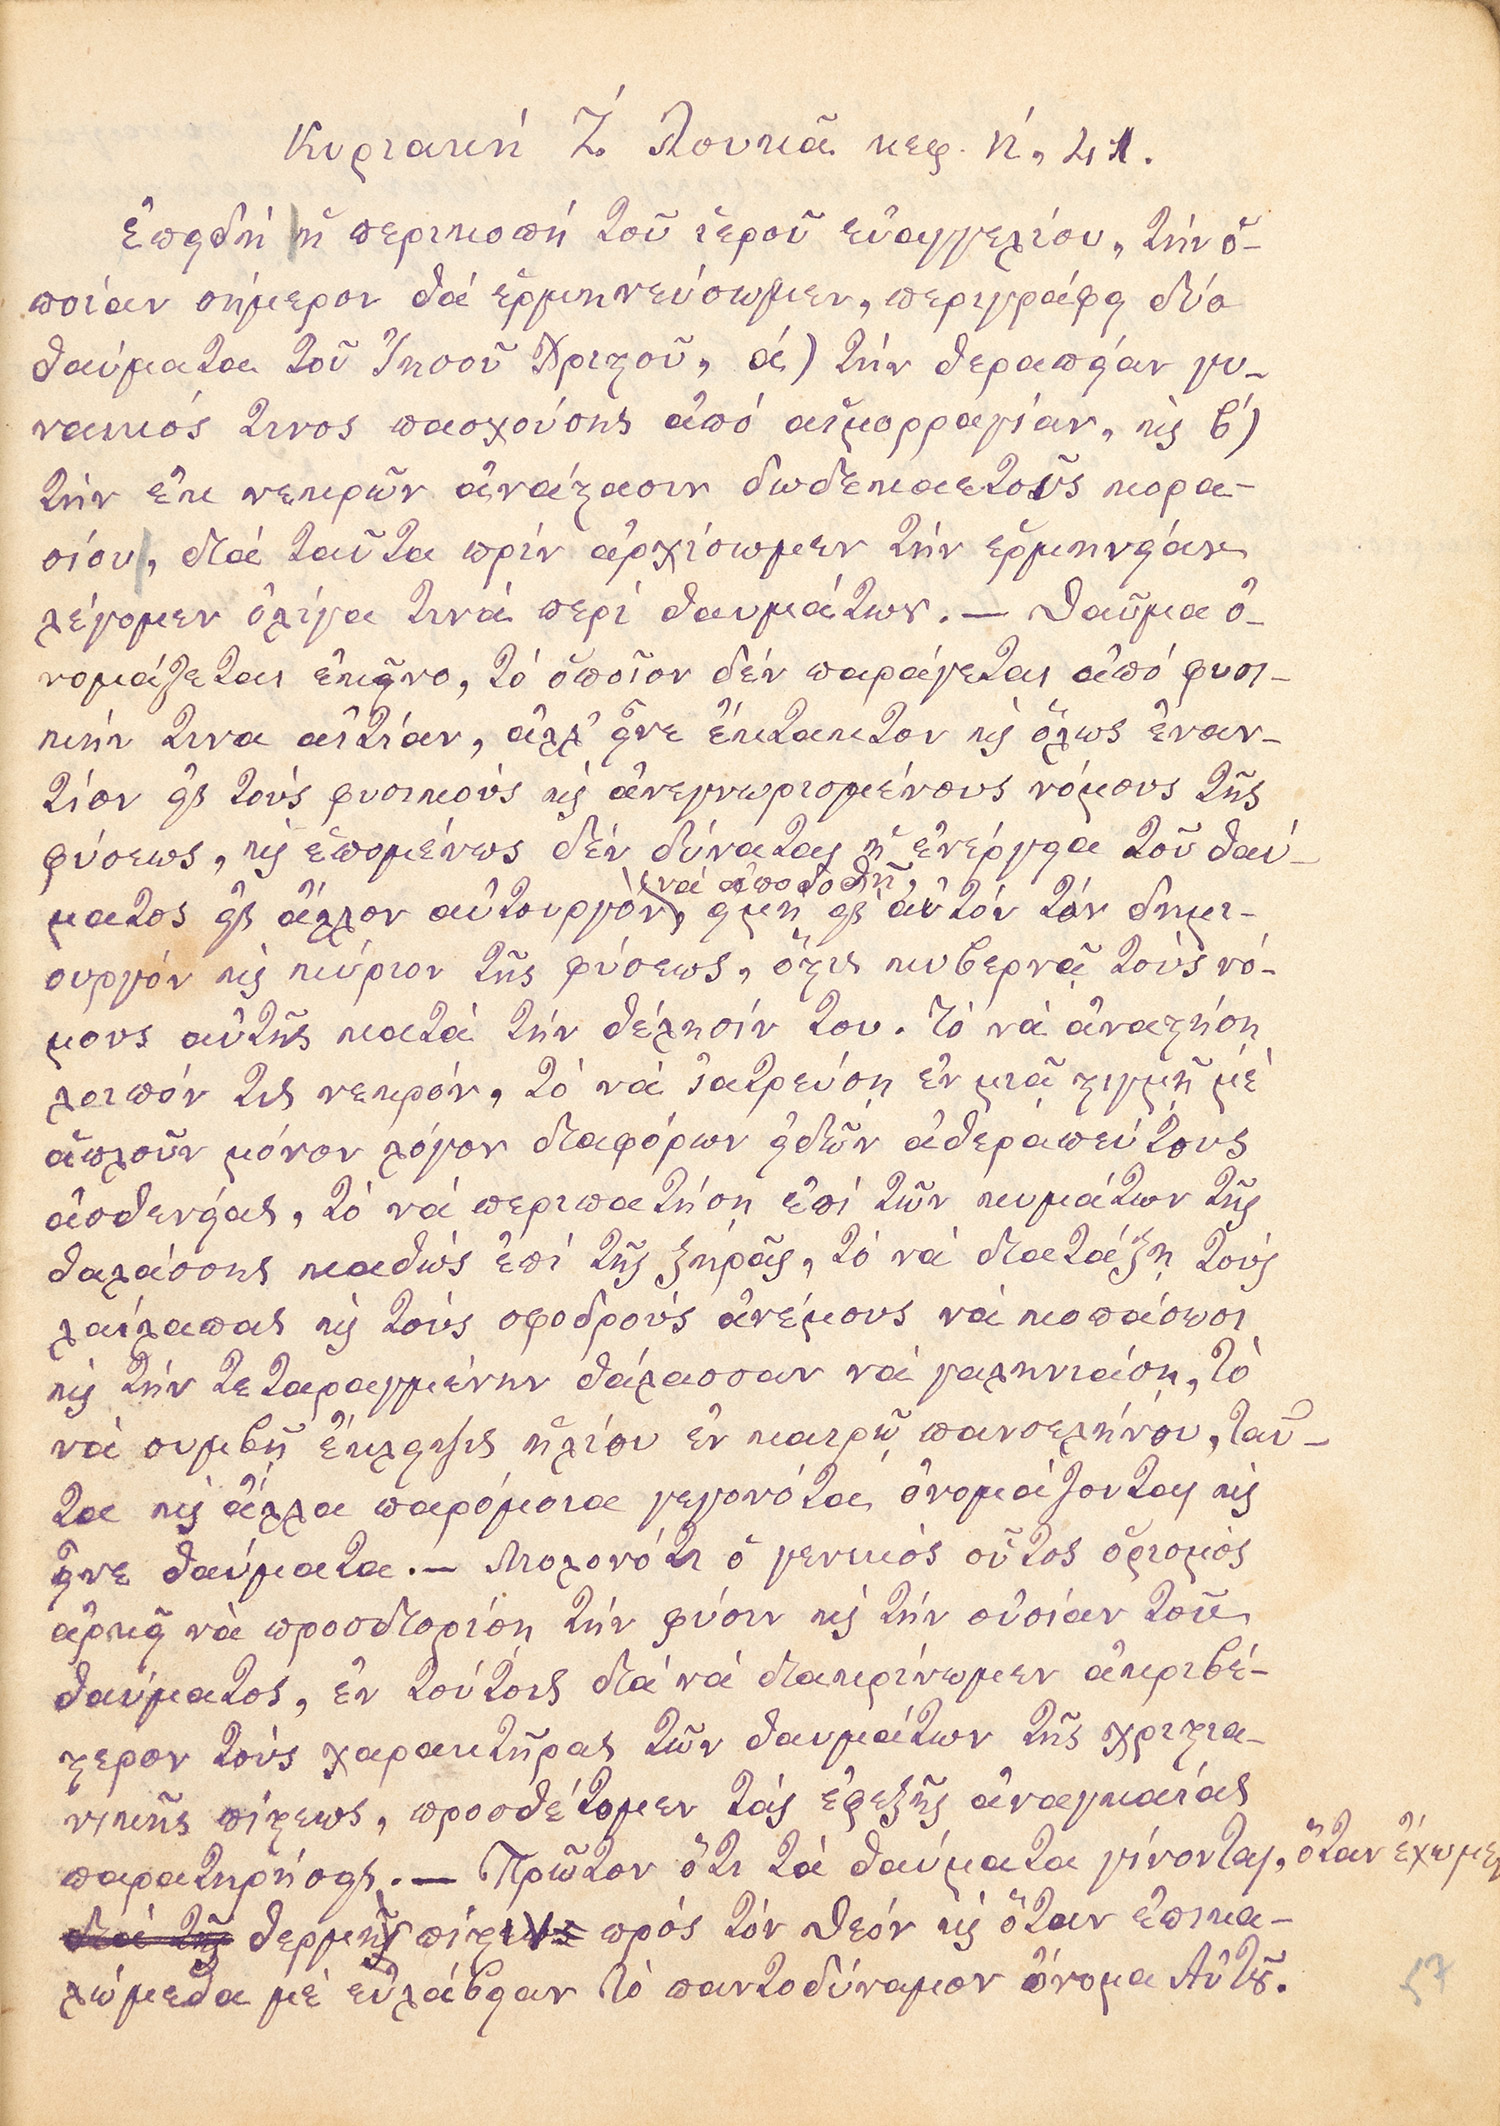 Κυριακή Ζ΄. Λουκᾶ κεφ. Η΄, 41.
Ἐπειδή ἡ περικοπή τοῦ ἱεροῦ εὐαγγελίου, τήν ὁ-
ποίαν σήμερον θά ἑρμηνεύσωμεν, περιγράφει δύο
θαύματα τοῦ Ἰησοῦ Χριστοῦ, ά) τήν θεραπείαν γυ-
ναικός τινος πασχούσης ἀπό αἱμορραγίαν, καί β΄)
τήν ἐκ νεκρῶν ἀνάστασιν δωδεκαετοῦς κορα-
σίου, διά ταῦτα πρίν ἀρχίσωμεν τήν ἑρμηνείαν
λέγομεν ὀλίγα τινά περί θαυμάτων. — Θαῦμα ὀ-
νομάζεται ἐκεῖνο, τό ὁποῖον δέν παράγεται ἀπό φυσι-
κήν τινα αἰτίαν, ἀλλ' εἶνε ἔκτακτον καί ὅλως ἐναν-
τίον εἰς τούς φυσικούς καί ἀνεγνωρισμένους νόμους τῆς
φύσεως, καί ἑπομένως δέν δύναται ἡ ἐνέργεια τοῦ θαύ-
νά ἀποδοθῇ,
ματος εἰς ἄλλον αὐτουργόν, εἰμή εἰς αὐτόν τόν δημι-
ουργόν καί κύριον τῆς φύσεως, ὅστις κυβερνᾷ τούς νό-
μους αὐτῆς κατά τήν θέλησίν του. Τό νά ἀναστήσῃ
λοιπόν τις νεκρόν, τό νά ἰατρεύσῃ ἐν μιᾷ στιγμῇ μέ
ἁπλοῦν μόνον λόγον διαφόρων εἰδῶν ἀθεραπεύτους
ἀσθενείας, τό νά περιπατήσῃ ἐπί τῶν κυμάτων τῆς
θαλάσσης καθώς ἐπί τῆς ξηρᾶς, τό νά διατάξῃ τούς
λαίλαπας καί τούς σφοδρούς ἀνέμους νά κοπάσωσι
καί τήν τεταραγμένην θάλασσαν νά γαληνιάσῃ, τό
νά συμβῇ ἔκλειψις ἡλίου ἐν καιρῷ πανσελήνου, ταῦ-
τα καί ἄλλα παρόμοια γεγονότα ὀνομάζονται καί
εἶνε θαύματα. — Μολονότι ὁ γενικός οὗτος ὁρισμός
ἀρκεῖ νὰ προσδιορίσῃ τήν φύσιν καί τήν οὐσίαν τοῦ
θαύματος, ἐν τούτοις διά νά διακρίνωμεν ἀκριβέ-
στερον τούς χαρακτῆρας τῶν θαυμάτων τῆς χριστια-
νικῆς πίστεως, προσθέτομεν τάς ἐφεξῆς ἀναγκαίας
παρατηρήσεις. — Πρῶτον ὅτι τά θαύματα γίνονται, ὅταν ἔχωμεν
διά τῆς θερμήν πίστιν πρός τόν Θεόν καί ὅταν ἐπικα-
λώμεθα μέ εὐλάβειαν τό παντοδύναμον ὄνομα Αὐτοῦ.
57